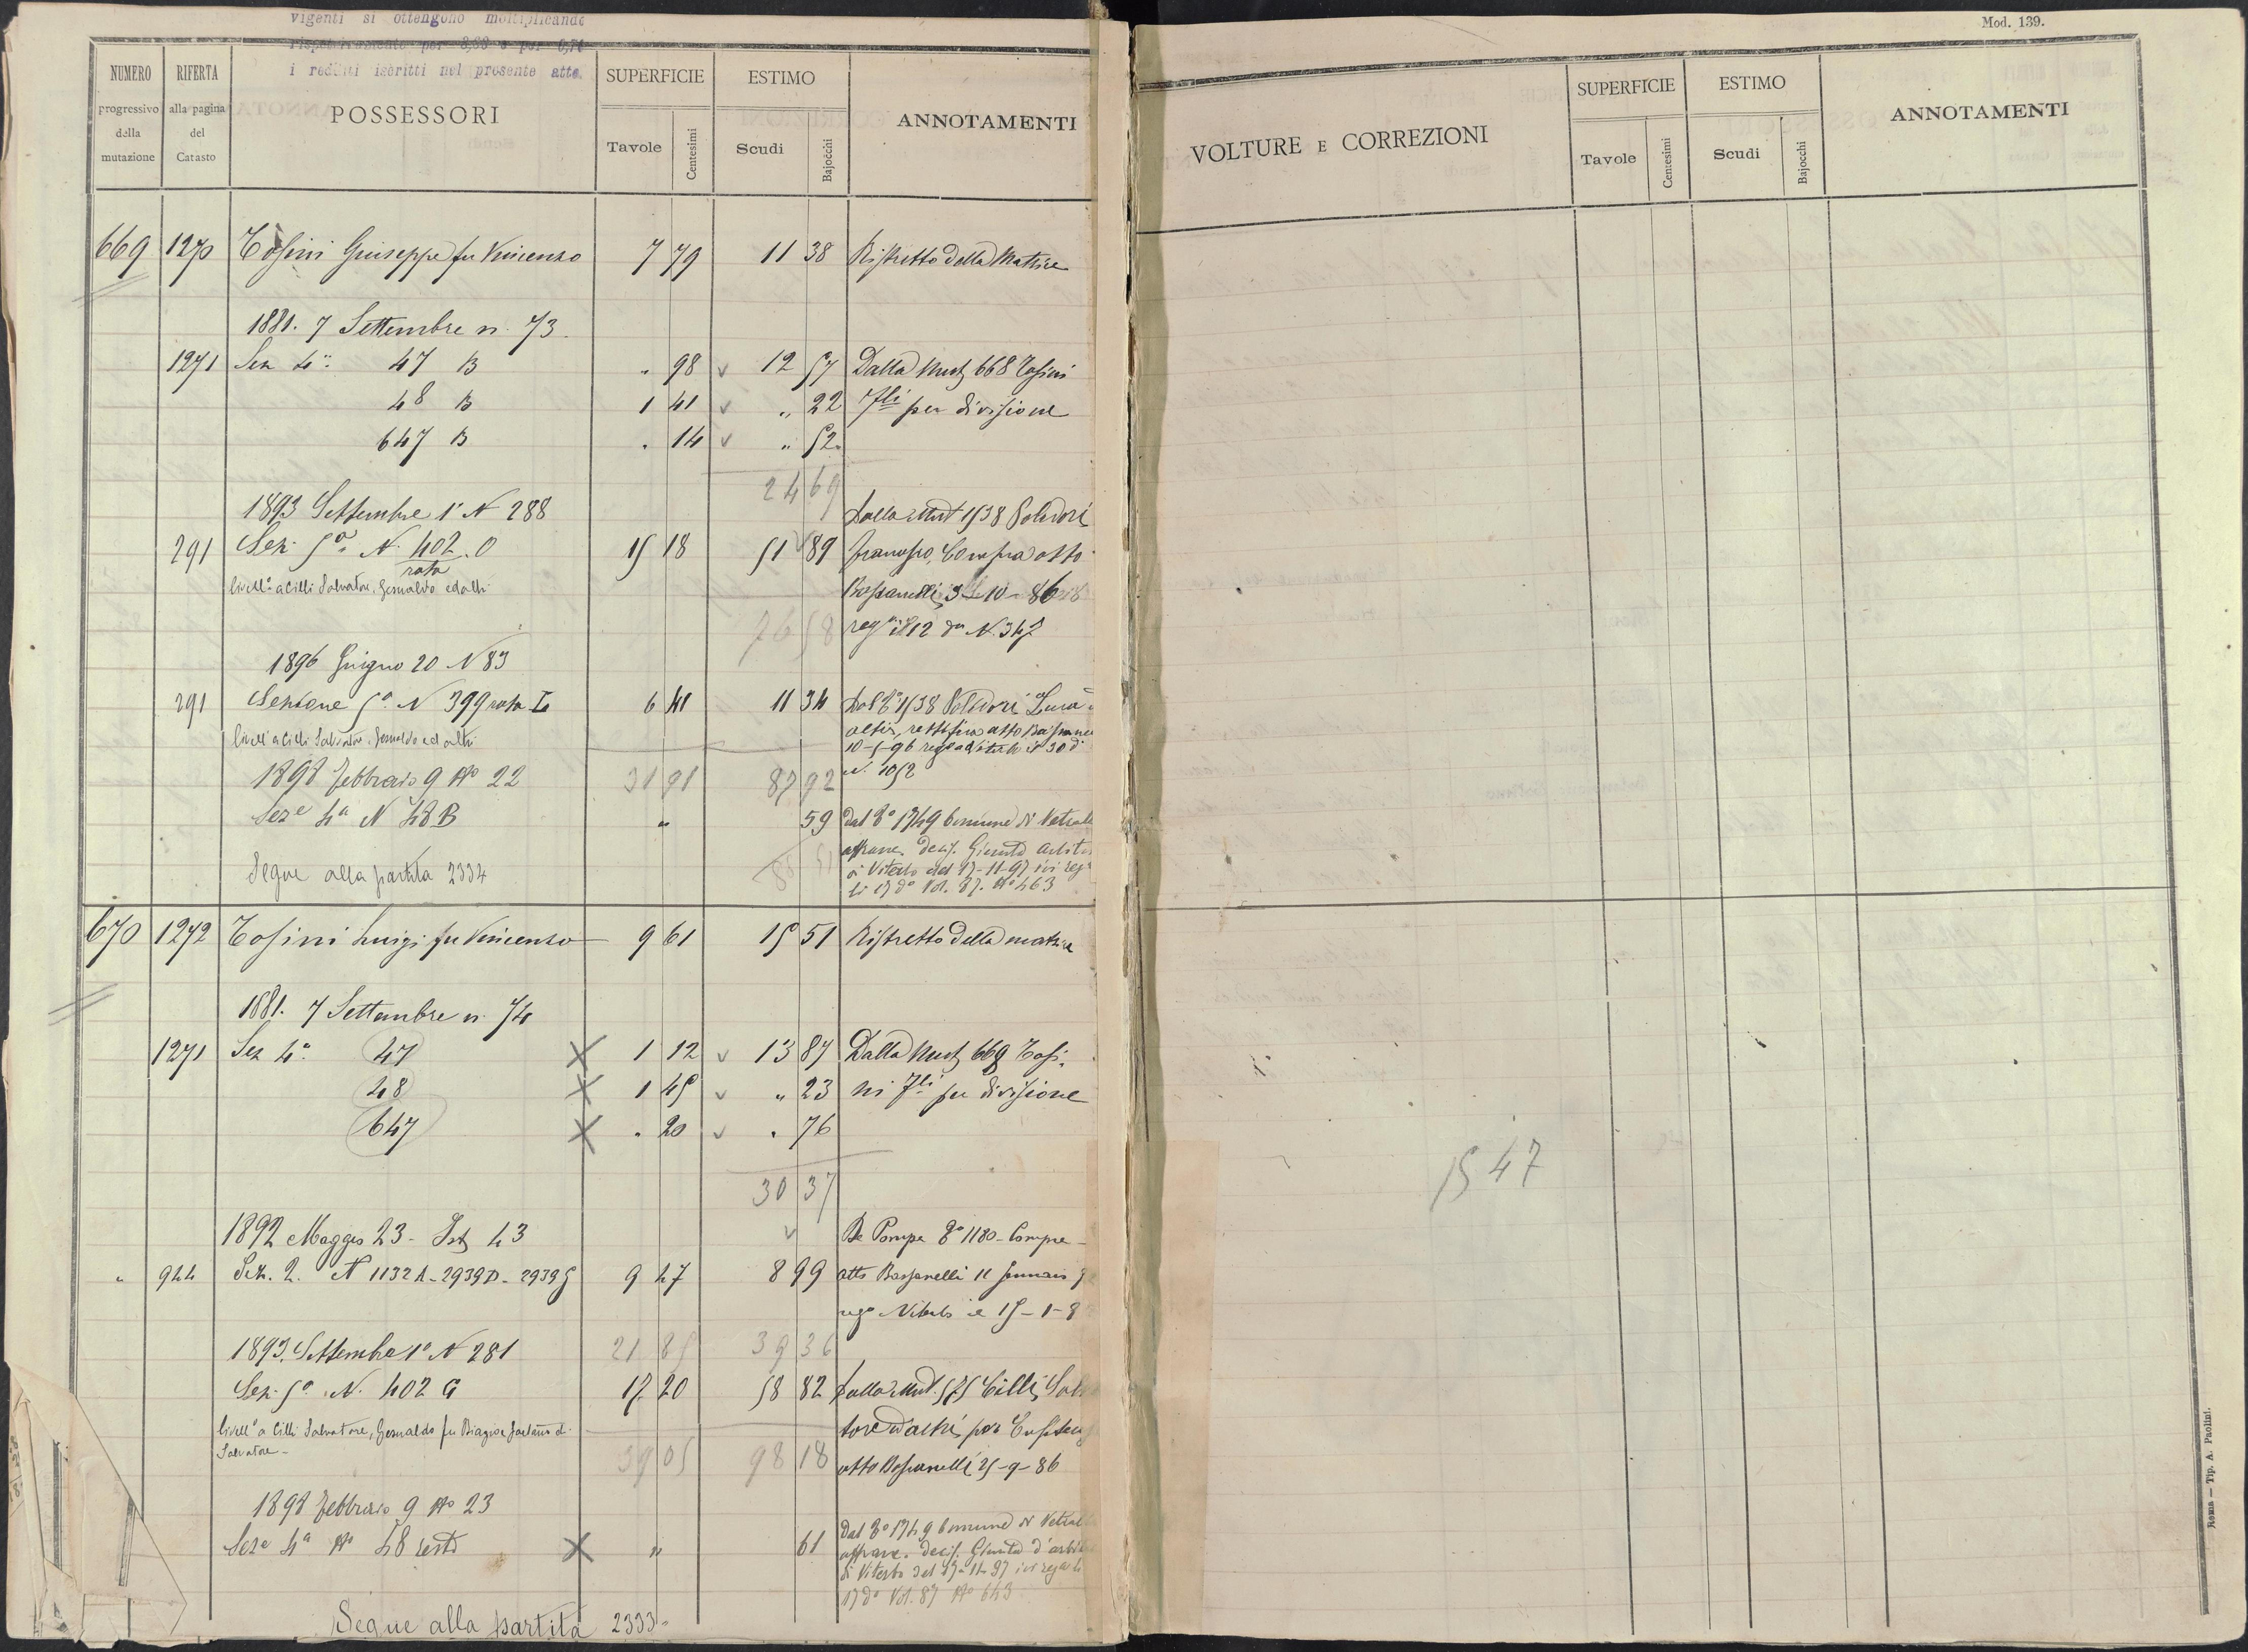 Vigenti si ottengono moltiplicando
rispettivamente per 3,33 e per 6,71
i redditi iscritti nel presente atto.
NUMERO progressivo della mutazione
RIFERTA alla pagina del Catasto
POSSESSORI
SUPERFICIE Tavole Centesimi
ESTIMO Scudi Bajocchi
ANNOTAMENTI
669 1270 Tosini Giuseppe fu Vincenzo 7 79 11 38 Ristretto della Matrice
1881. 7 Settembre n. 73.
1271 Sez 4ª 47 B " 98 12 57 Dalla Mutz 668 Tosini
48 B 1 41 " 22 Flli per divisione
647 B " 14 " 52
24 69
1893 Settembre 1° N 288 Dalla Mut 1538 Polidori
291 Sez. 5ª N. 402.O 15 18 51 89 Compra atto
rata
livell° a Cilli Salvatore, Gesualdo ed altri Bassanelli 3-10-86
76 58 reg il 12 do N. 347
1896 Giugno 20 N 83
291 Sezione 5ª N 399 rata I 6 41 11 34 Dal T° 1538 Polidori
livell° a Cilli Salvatore, Gesualdo ed altri altri, rettifica atto
10-5-96 reg a Viterbo il 30 d°
1898 Febbraio 9 N° 22 31 91 87 92 N. 1052
Seze 4ª N 48 B " 59 dal T° 1749 Comune di Vetral
affranc. decis. Giunta Arbit
di Viterbo del 17-11-97 ivi reg
Segue alla partita 2334 88 51 li 17 d° Vol. 87. N° 463
670 1272 Tosini Luigi fu Vincenzo 9 61 15 51 Ristretto della matrice
1881. 7 Settembre n. 74
1271 Sez 4ª 47 1 12 13 87 Dalla Mutz 668 Tosi-
48 1 45 " 23 ni Flli per divisione
647 " 20 " 76
30 37
1892 Maggio 23 - 43 De Pompe T° 1180 - Compra -
" 944 Sez. 2. N 1132 A - 2939 D - 2939 G 9 47 8 99 atto Bassanelli 11 Gennaio
rego Viterbo il 15-1-8
1893. Settembre 1° N 281 21 85 39 36
Sez. 5ª N. 402 G 17 20 58 82 Dalla Mut. 575 Cilli Salva
livell° a Cilli Salvatore, Gesualdo fu Biagio e Gaetano d. tore ed altri per
Salvatore - 39 05 98 18 atto Bassanelli 25-9-86
1898 Febbraio 9 N° 23
Seze 4ª N° 48 resto " 61 Dal T° 1749 Comune di Vetral
affranc. decis. Giunta d'arbit
di Viterbo del 17-11-97 ivi reg li
17 d° Vol. 87 N° 643
Segue alla partita 2333.
Mod. 139.
VOLTURE E CORREZIONI
SUPERFICIE Tavole Centesimi
ESTIMO Scudi Bajocchi
ANNOTAMENTI
1547
Roma — Tip. A. Paolini.